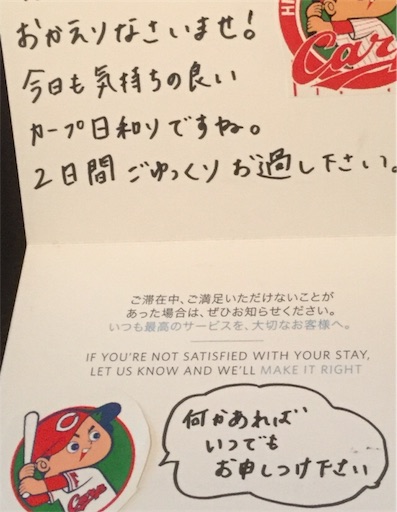 おかえりなさいませ!
今日も気持ちの良い
カープ日和りですね。
2日間 ごゆっくり お過し下さい。
ご滞在中、ご満足いただけないことが
あった場合は、ぜひお知らせください。
いつも最高のサービスを、大切なお客様へ。
IF YOU'RE NOT SATISFIED WITH YOUR STAY,
LET US KNOW AND WE'LL MAKE IT RIGHT
何かあれば
いつでも
お申しつけ下さい
C
Carp